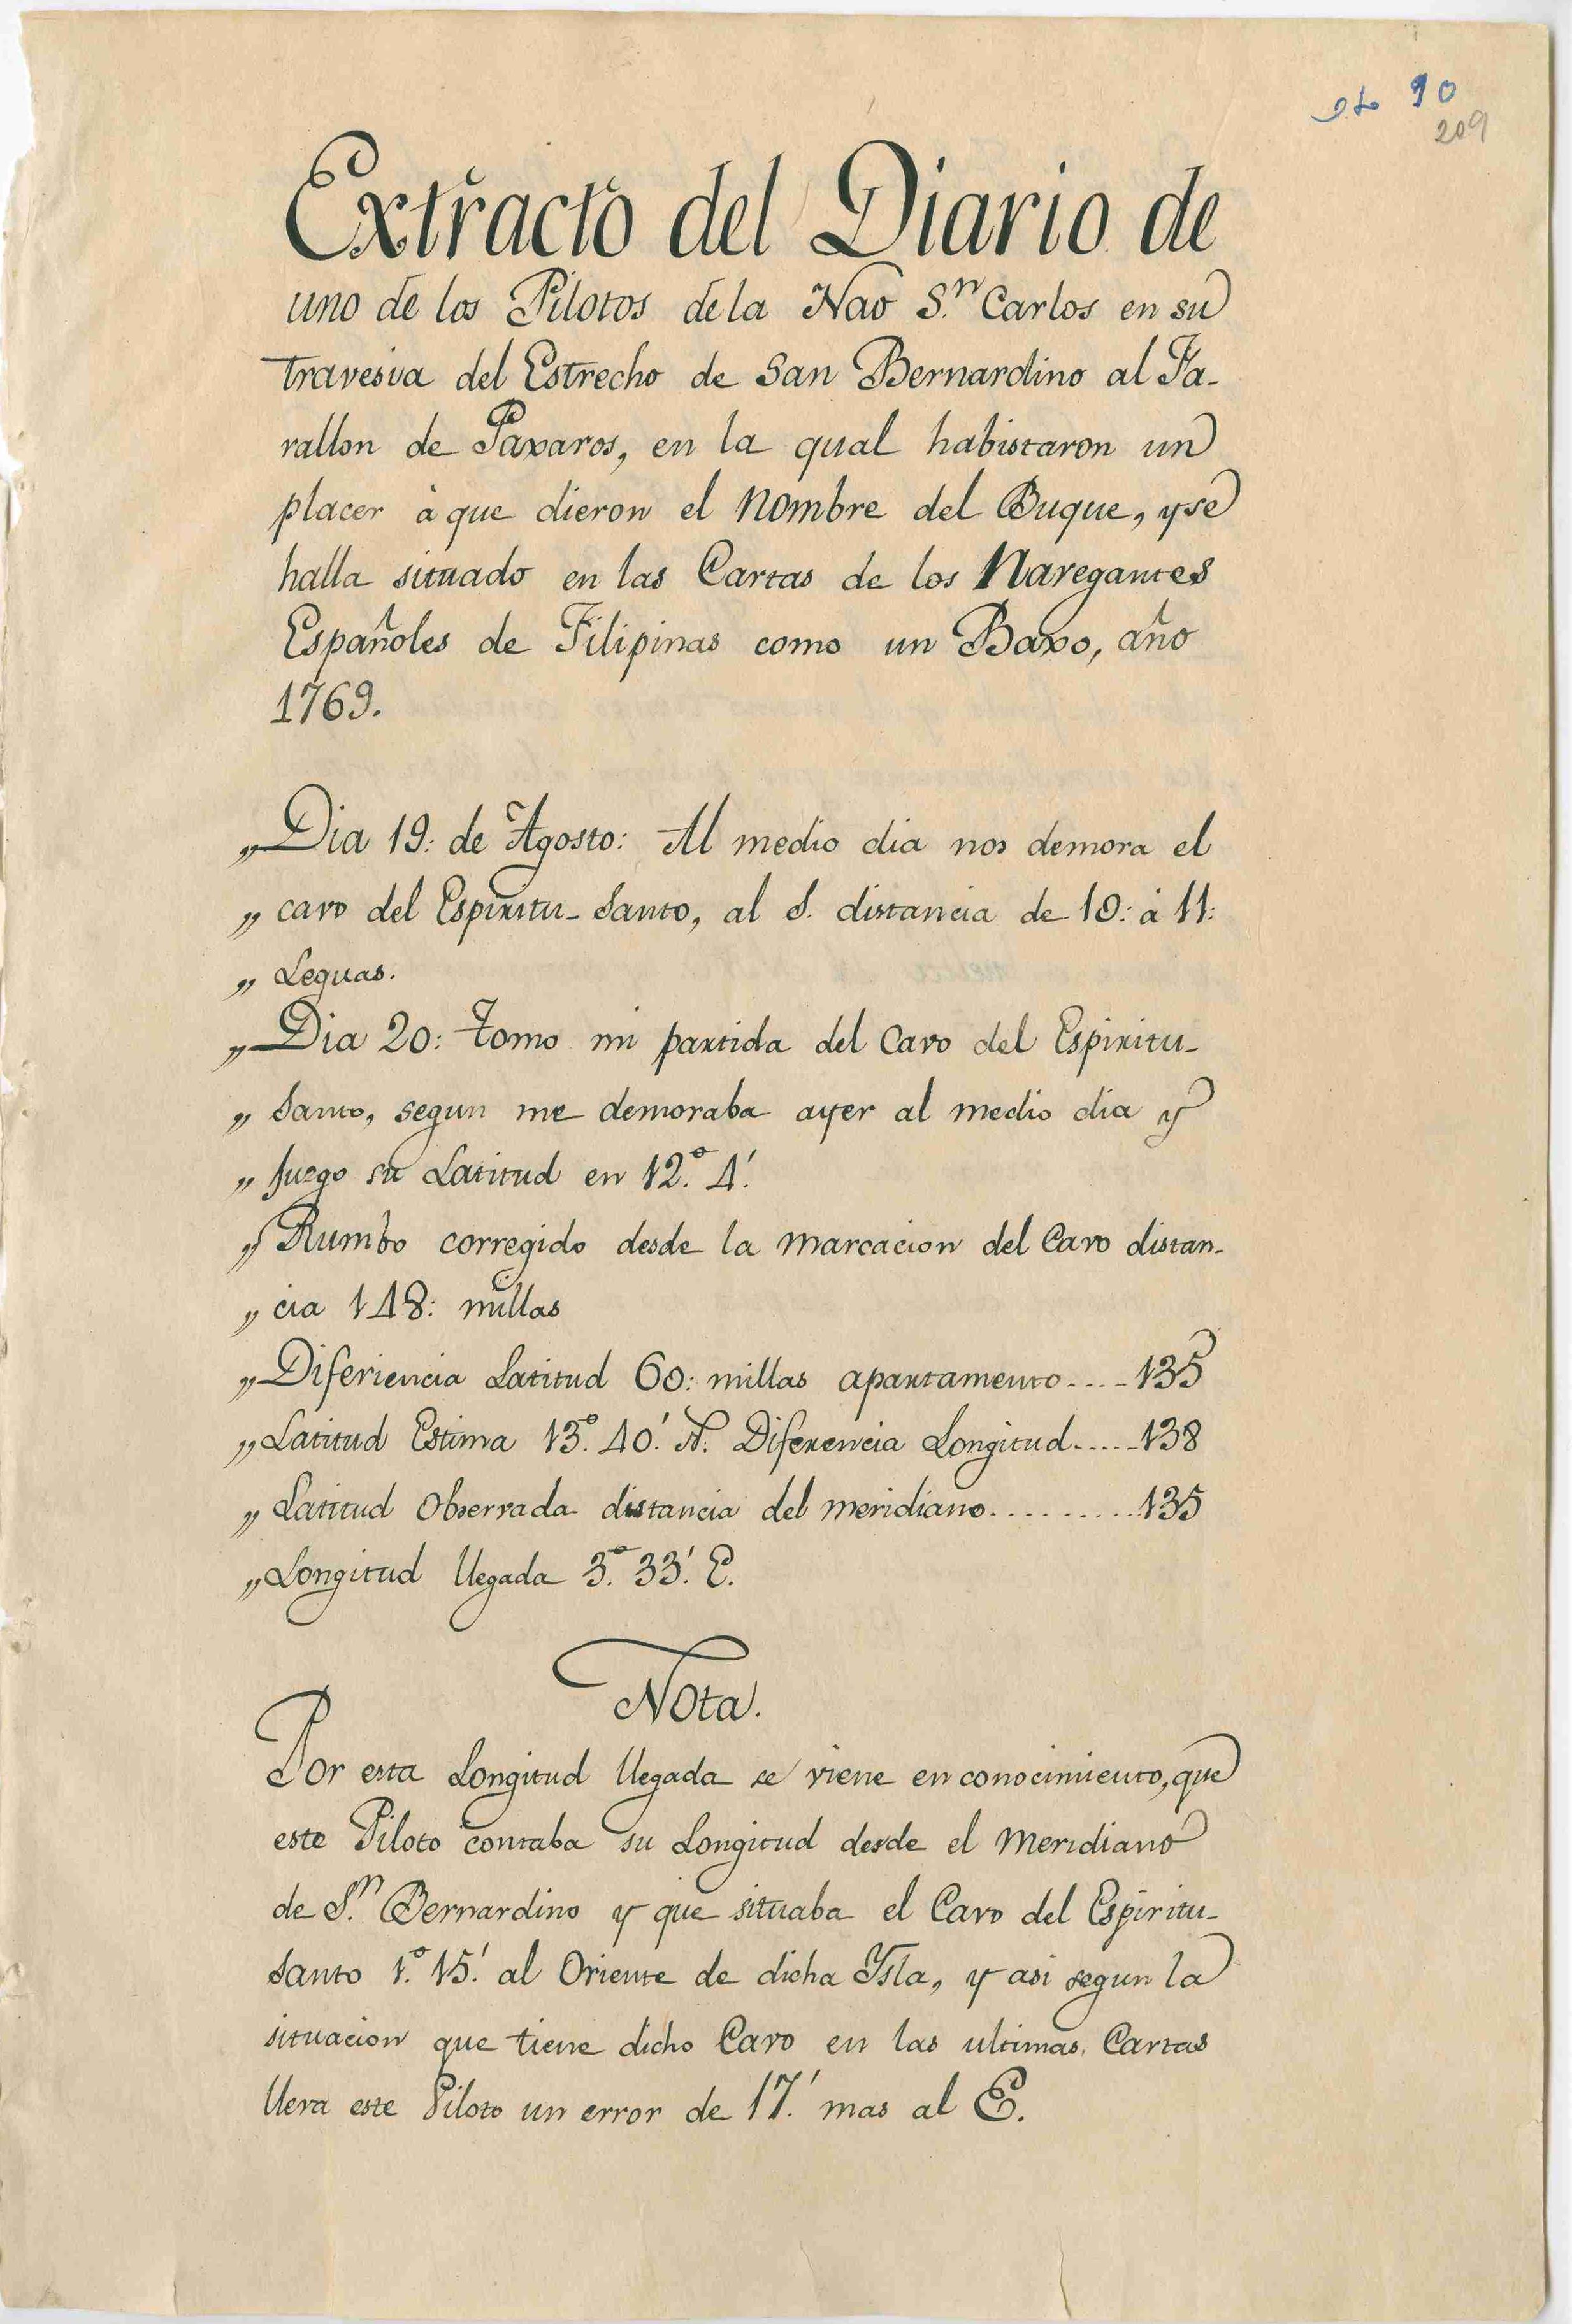 90
209
Extracto del Diario de
uno de los Pilotos de la Nao S.n Carlos en su
travesia del Estrecho de San Bernardino al Fa-
rallon de Paxaros, en la qual habistaron un
placer à que dieron el nombre del Buque, y se
halla situado en las Cartas de los Navegantes
Españoles de Filipinas como un Baxo, año
1769.
„Dia 19: de Agosto: Al medio dia nos demora el
„ cavo del Espiritu-Santo, al S. distancia de 10: à 11:
„ Leguas.
„Dia 20: Tomo mi partida del Cavo del Espiritu-
„ Santo, segun me demoraba ayer al medio dia y
„ juzgo su Latitud en 12.° 4'.
„ Rumbo corregido desde la marcacion del Cavo distan-
„ cia 148: millas
„Diferiencia Latitud 60: millas apartamento....135
„Latitud Estima 13.° 40'. N. Diferencia Longitud.....138
„ Latitud Observada distancia del meridiano..........135
„Longitud llegada 3.° 33'. E.
Nota.
Por esta Longitud llegada se viene en conocimiento, que
este Piloto contaba su Longitud desde el Meridiano
de S.n Bernardino y que situaba el Cavo del Espiritu-
Santo 1.° 15'. al Oriente de dicha Ysla, y asi segun la
situacion que tiene dicho Cavo en las ultimas Cartas
lleva este Piloto un error de 17'. mas al E.